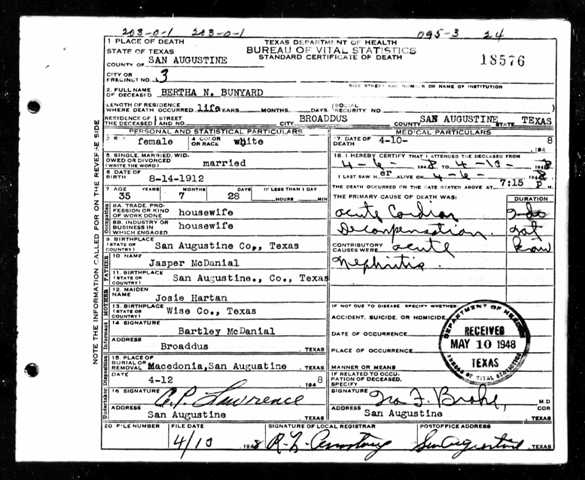 203-0-1 203-0-1 095-3 24
1 PLACE OF DEATH
STATE OF TEXAS
TEXAS DEPARTMENT OF HEALTH
BUREAU OF VITAL STATISTICS
STANDARD CERTIFICATE OF DEATH
18576
COUNTY OF SAN AUGUSTINE
CITY OR PRECINCT NO. 3
2 FULL NAME OF DECEASED BERTHA N. BUNYARD
LENGTH OF RESIDENCE WHERE DEATH OCCURRED life YEARS MONTHS DAYS (SOCIAL SECURITY NO.)
RESIDENCE OF THE DECEASED STREET AND NO. CITY BROADDUS COUNTY SAN AUGUSTINE STATE TEXAS
PERSONAL AND STATISTICAL PARTICULARS
3 SEX female 4 COLOR OR RACE white
5 SINGLE, MARRIED, WIDOWED OR DIVORCED (WRITE THE WORD) married
6 DATE OF BIRTH 8-14-1912
7 AGE YEARS MONTHS DAYS IF LESS THAN 1 DAY
35 7 28 HOURS MIN
8A. TRADE, PROFESSION OR KIND OF WORK DONE housewife
8B. INDUSTRY OR BUSINESS IN WHICH ENGAGED housewife
9 BIRTHPLACE (STATE OR COUNTRY) San Augustine Co., Texas
10 NAME Jasper McDanial
11 BIRTHPLACE (STATE OR COUNTRY) San Augustine., Co., Texas
12 MAIDEN NAME Josie Hartan
13 BIRTHPLACE (STATE OR COUNTRY) Wise Co., Texas
14 SIGNATURE Bartley McDanial
ADDRESS Broaddus TEXAS
15 PLACE OF BURIAL OR REMOVAL Macedonia, San Augustine TEXAS
DATE 4-12 8
16 SIGNATURE C.P. Lawrence
ADDRESS San Augustine TEXAS
MEDICAL PARTICULARS
17 DATE OF DEATH 4-10- 8
18 I HEREBY CERTIFY THAT I ATTENDED THE DECEASED FROM
4-6- 8 TO 4-10 8
I LAST SAW H er ALIVE ON 4-6- 8
THE DEATH OCCURRED ON THE DATE STATED ABOVE AT 7:15 P M.
THE PRIMARY CAUSE OF DEATH WAS: DURATION
Acute Cardiac
Decompensation
CONTRIBUTORY CAUSES WERE acute
Nephritis
not
know
IF NOT DUE TO DISEASE, SPECIFY WHETHER:
ACCIDENT, SUICIDE, OR HOMICIDE
DATE OF OCCURRENCE
PLACE OF OCCURRENCE
MANNER OR MEANS
IF RELATED TO OCCUPATION OF DECEASED, SPECIFY
SIGNATURE M D
ADDRESS San Augustine TEXAS
DEPARTMENT OF HEALTH
RECEIVED
MAY 10 1948
TEXAS
BUREAU OF VITAL STATISTICS
20 FILE NUMBER FILE DATE SIGNATURE OF LOCAL REGISTRAR POSTOFFICE ADDRESS
4/10 8 San Augustine TEXAS
NOTE THE INFORMATION CALLED FOR ON THE REVERSE SIDE